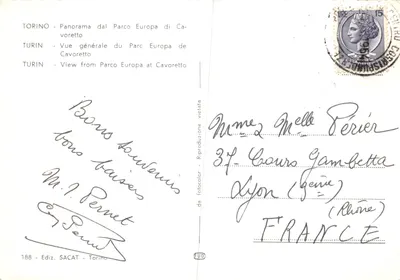 TORINO - Panorama dal Parco Europa di Ca-
voretto
TURIN - Vue générale du Parc Europe de
Cavoretto
TURIN - View from Parco Europa at Cavoretto
Bons souvenirs
bons baisers
M. J. Pernet
188 - Ediz. SACAT - Torino
Riproduzione vietata
15
Mme & Melle Périer
37 Cours Gambetta
Lyon (3ème)
(Rhône)
FRANCE